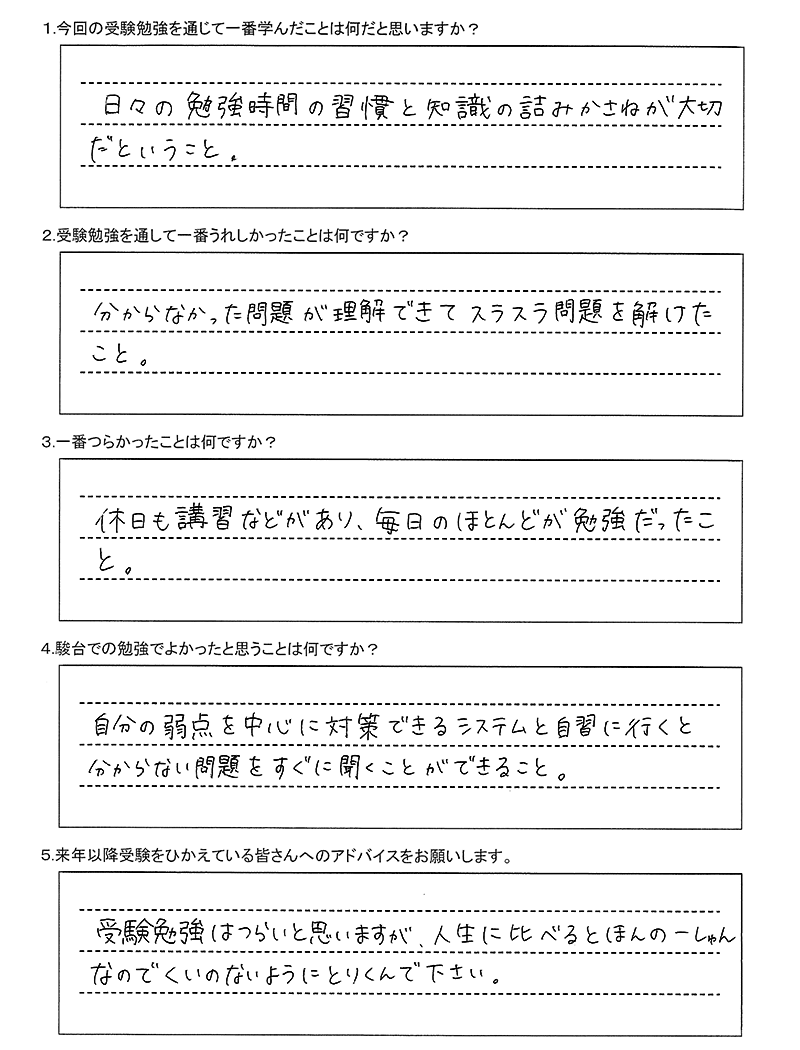 1.今回の受験勉強を通じて一番学んだことは何だと思いますか？
日々の勉強時間の習慣と知識の詰みかさねが大切
だということ。
2.受験勉強を通して一番うれしかったことは何ですか？
分からなかった問題が理解できてスラスラ問題を解けた
こと。
3.一番つらかったことは何ですか？
休日も講習などがあり、毎日のほとんどが勉強だったこ
と。
4.駿台での勉強でよかったと思うことは何ですか？
自分の弱点を中心に対策できるシステムと自習に行くと
分からない問題をすぐに聞くことができること。
5.来年以降受験をひかえている皆さんへのアドバイスをお願いします。
受験勉強はつらいと思いますが、人生に比べるとほんの一しゅん
なのでくいのないようにとりくんで下さい。